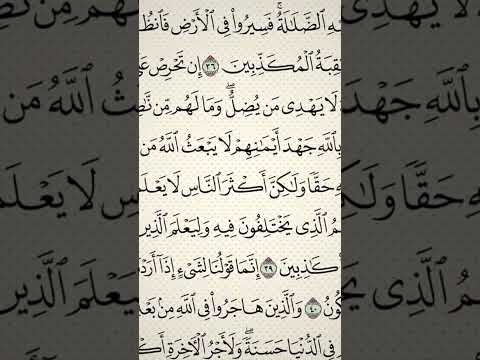 ـهِ ٱلضَّلَٰلَةُ ۚ فَسِيرُوا۟ فِى ٱلْأَرْضِ فَٱنظُـ
ـقِبَةُ ٱلْمُكَذِّبِينَ ٣٦ إِن تَحْرِصْ عَلَـ
لَا يَهْدِى مَن يُضِلُّ ۖ وَمَا لَهُم مِّن نَّـٰصِـ
بِٱللَّهِ جَهْدَ أَيْمَٰنِهِمْ لَا يَبْعَثُ ٱللَّهُ مَن
ـهِ حَقًّا وَلَٰكِنَّ أَكْثَرَ ٱلنَّاسِ لَا يَعْلَمُـ
ـمُ ٱلَّذِى يَخْتَلِفُونَ فِيهِ وَلِيَعْلَمَ ٱلَّذِيـنَ
كَٰذِبِينَ ٣٩ إِنَّمَا قَوْلُنَا لِشَىْءٍ إِذَآ أَرَدْ
ـكُونُ ٤٠ وَٱلَّذِينَ هَاجَرُوا۟ فِى ٱللَّهِ مِنۢ بَعْـ
فِى ٱلدُّنْيَا حَسَنَةً ۖ وَلَأَجْرُ ٱلْءَاخِرَةِ أَكْـ